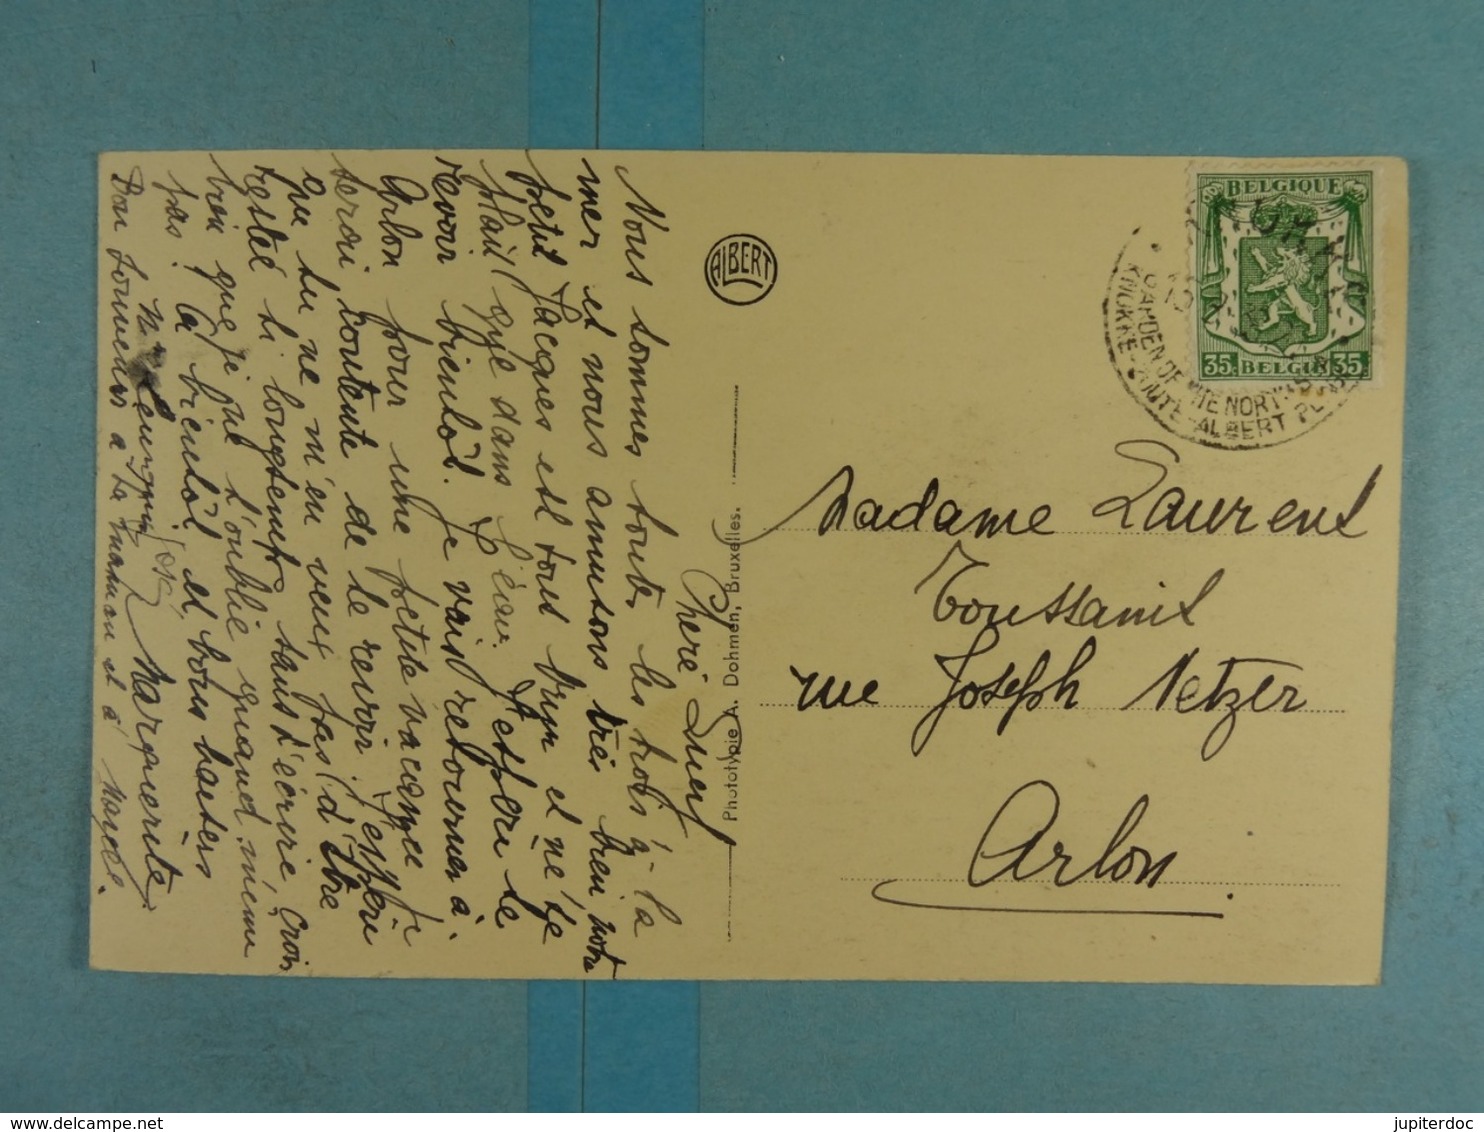 Chère Suzy
Nous sommes toute les trois à la
mer et nous amusons très bien notre
petit Jacques est tous brun et ne se
plait que dans l'eau. J'espère te
revoir bientôt. Je vais retourner à
Arlon pour une petite vacance je
serai contente de te revoir j'espère
que tu ne m'en veux pas d'être
resté si longtemps sans t'écrire crois
bien que je ne t'oublie quand même
pas. A bientôt et bons baisers
Marguerite.
José
Bon souvenirs a ta maman et à
ALBERT
Phototypie A. Dohmen, Bruxelles.
BELGIQUE
35 BELGIE 35
GARDEN OF THE NORTH SEA
KNOKKE-ZOUTE-ALBERT PLAGE
Madame Laurent
Toussaint
rue Joseph Netzer
Arlon
jupiterdoc